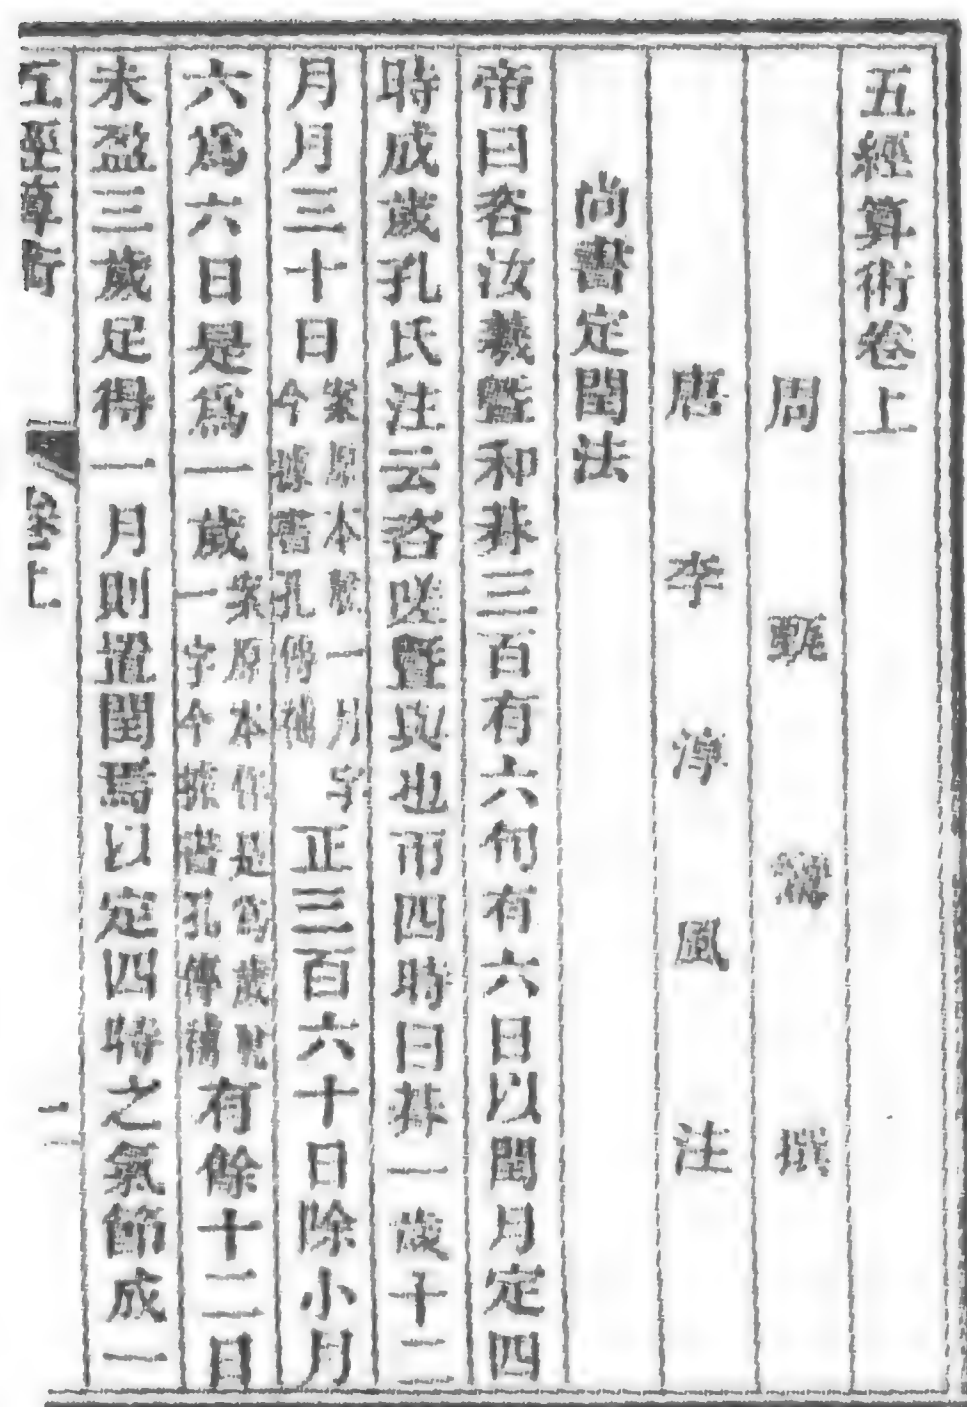 五經算術卷上
周甄鸞撰
唐李淳風注
尚書定閏法
帝曰咨汝羲曁和朞三百有六旬有六日以閏月定四
時成歲孔氏注云咨嗟曁與也帀四時曰朞一歲十二
月月三十日案原本脫一月字今據舊孔傳補正三百六十日除小月
六爲六日是爲一歲案原本作是爲歲脫一字今據舊孔傳補有餘十二日
未盈三歲足得一月則置閏焉以定四時之氣節成一
五經算術 卷上 一